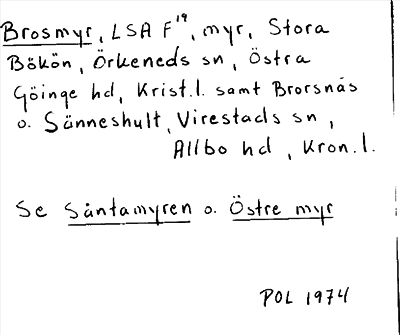 Brosmyr, LSA F¹⁹, myr, Stora
Bökön, Örkeneds sn, Östra
Göinge hd, Krist.l. samt Brorsnäs
o. Sånneshult, Virestads sn,
Allbo hd, Kron.l.
Se Såntamyren o. Östre myr
POL 1974